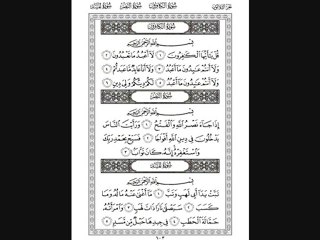 سُورَةُ الكَافِرُونَ سُورَةُ النَّصْرِ سُورَةُ المَسَدِ
سُورَةُ الكَافِرُونَ
بِسْمِ اللَّهِ الرَّحْمَٰنِ الرَّحِيمِ
قُلْ يَٰٓأَيُّهَا ٱلْكَٰفِرُونَ ١ لَآ أَعْبُدُ مَا تَعْبُدُونَ ٢
وَلَآ أَنتُمْ عَٰبِدُونَ مَآ أَعْبُدُ ٣ وَلَآ أَنَا۠ عَابِدٌ مَّا عَبَدتُّمْ ٤
وَلَآ أَنتُمْ عَٰبِدُونَ مَآ أَعْبُدُ ٥ لَكُمْ دِينُكُمْ وَلِىَ دِينِ ٦
سُورَةُ النَّصْرِ
بِسْمِ اللَّهِ الرَّحْمَٰنِ الرَّحِيمِ
إِذَا جَآءَ نَصْرُ ٱللَّهِ وَٱلْفَتْحُ ١ وَرَأَيْتَ ٱلنَّاسَ
يَدْخُلُونَ فِى دِينِ ٱللَّهِ أَفْوَاجًا ٢ فَسَبِّحْ بِحَمْدِ رَبِّكَ
وَٱسْتَغْفِرْهُ إِنَّهُۥ كَانَ تَوَّابًۢا ٣
سُورَةُ المَسَدِ
بِسْمِ اللَّهِ الرَّحْمَٰنِ الرَّحِيمِ
تَبَّتْ يَدَآ أَبِى لَهَبٍ وَتَبَّ ١ مَآ أَغْنَىٰ عَنْهُ مَالُهُۥ وَمَا
كَسَبَ ٢ سَيَصْلَىٰ نَارًا ذَاتَ لَهَبٍ ٣ وَٱمْرَأَتُهُۥ
حَمَّالَةَ ٱلْحَطَبِ ٤ فِى جِيدِهَا حَبْلٌ مِّن مَّسَدٍۭ ٥
٦٠٣